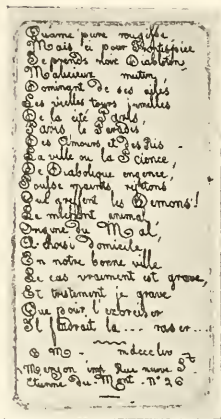 Qu'ame pure rougisse
Mais ici pour Frontispice
Je prends notre Diablotin
Malicieux mutin,
Dominant de ses ailes
Les vieilles tours jumelles
De la cité Paris
Paris, le Paradis
Des Amours et des Ris
La ville ou la Science,
De Diabolique engeance,
Pousse maints rejetons
Que greffent les Démons!
Le méchant animal
Origine du Mal,
A choisi domicile,
En notre bonne ville
Le cas vraiment est grave,
Et tristement je grave
Que pour l'exorciser
Il faudrait la... raser...
C M - mdccclv
Meryon imp Rue neuve St
Etienne-du-Mont - N° 26